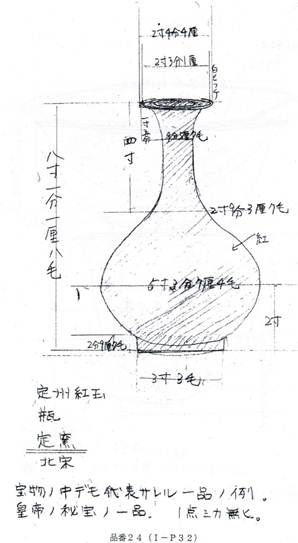 2寸4分4厘
2寸3分1厘
四寸
八寸一分一厘八毛
2寸9分3厘7毛
紅
5寸3分9厘4毛
2寸
3寸3毛
定州紅玉
瓶
定窯
北宋
宝物ノ中デモ代表サレル一品ノ例。
皇帝ノ秘宝ノ一品. 1点ミカ無し。
品番24(I-P32)